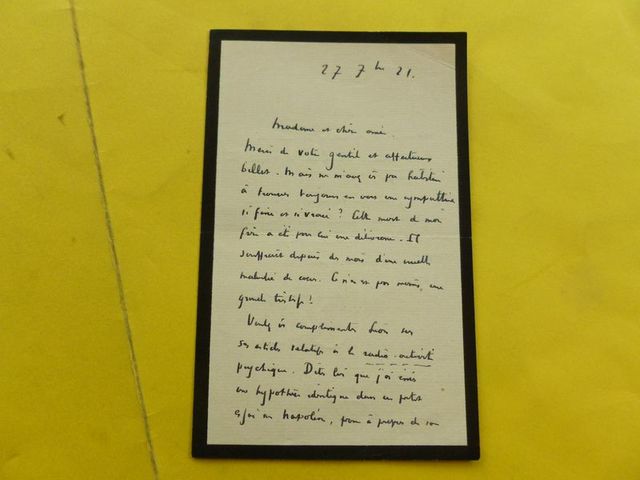 27 7bre 21.
Madame et chère amie
Merci de votre gentil et affectueux
billet. Mais ne m'avez vs pas habitué
à trouver toujours en vous une sympathie
si fine et si vraie ? Cette mort de mon
frère a été pour lui une délivrance. Il
souffrait depuis des mois d'une cruelle
maladie de cœur. Ce n'en est pas moins une
grande tristesse !
Voulez vs complimenter Léon sur
ses articles relatifs à la radio-activité
psychique. Dites lui que j'ai émis
une hypothèse identique dans un petit
essai sur Napoléon, paru à propos de son